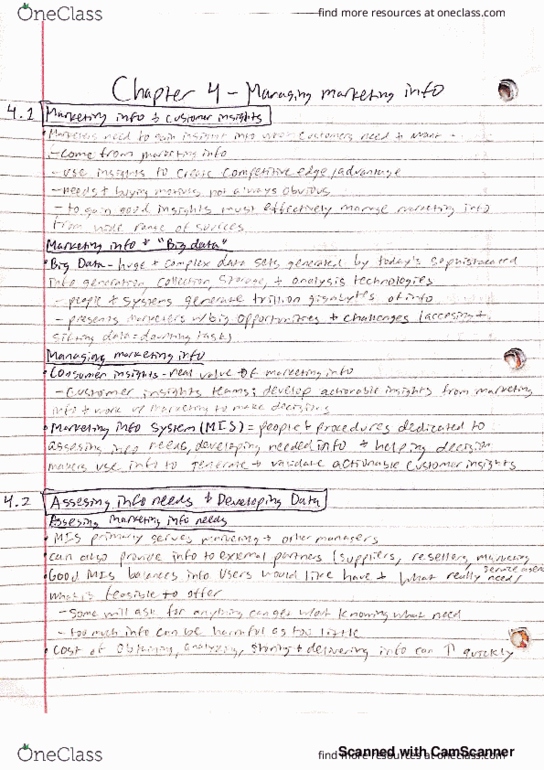 OneClass
find more resources at oneclass.com
Chapter 4 - Managing marketing info
4.1 Marketing info + customer insights
• Marketers need to gain insight into what customers need + want -
- come from marketing info
- use insights to create competitive edge/advantage
- needs + buying motives not always obvious
- to gain good insights must effectively manage marketing info
from wide range of sources
Marketing info + "Big data"
• Big Data - huge + complex data sets generated by today's sophisticated
info generation, collection, storage, + analysis technologies
- people + systems generate trillion gigabytes of info
- presents marketers w/ big opportunities + challenges (accessing +
sifting data = daunting task)
Managing marketing info
• Consumer insights - real value of marketing info
- Customer insights teams: develop actionable insights from marketing
info + work w/ marketing to make decisions
• Marketing info system (MIS) = people + procedures dedicated to
assesing info needs, developing needed info + helping decision
makers use info to generate + validate actionable customer insights
4.2 Assesing info needs + Developing Data
Assesing marketing info needs
• MIS primary serves marketing + other managers
• can also provide info to external partners (suppliers, resellers, marketing
service
• Good MIS balances info users would like have + what really need/
what is feasible to offer
- Some will ask for anything can get w/out knowing what need
- too much info can be harmful as too little
• cost of obtaining, analyzing, storing + delivering info can ↑ quickly
OneClass
find more resources at oneclass.com
Scanned with CamScanner